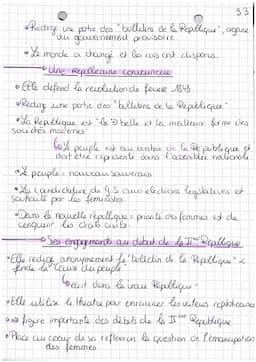 53
• Rédige une partie des "bulletins de la République", organe
du gouvernement provisoire.
• Le monde a changé et les rois ont disparus.
→ Une Républicaine convaincue
• Elle défend la révolution de février 1848
• Rédige une partie des "bulletins de la République"
• La République est "la + belle et la meilleure forme des
sociétés modernes"
↳ le peuple est au centre de la République et
doit être représenté dans l'assemblée nationale.
• Le peuple = nouveau souverain
• La candidature de G.S aux élections législatives est
soutenue par les féministes.
• Dans la nouvelle république = priorité des femmes est de
conquérir les droits civils.
→ Ses engagements au début de la IIème République
• Elle rédige anonymement le "bulletin de la République" &
fonde "la cause du peuple"
↳ écrit dans la vraie République
• Elle utilise le théâtre pour enraciner les valeurs républicaines
⇒ figure importante des débuts de la IIème République
• Place au coeur de sa réflexion la question de l'émancipation
des femmes